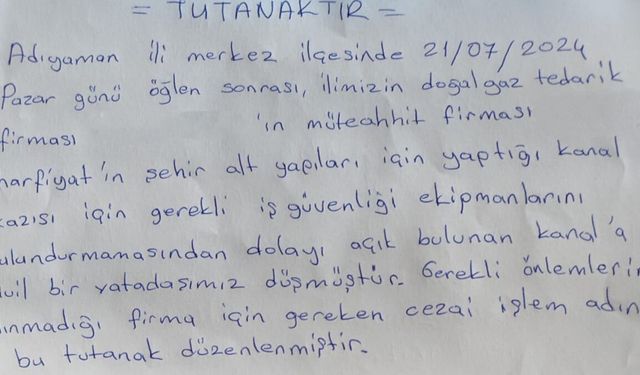 = TUTANAKTIR =
Adıyaman ili merkez ilçesinde 21/07/2024
Pazar günü öğlen sonrası, ilimizin doğalgaz tedarik
firması 'ın müteahhit firması
harfiyat'ın şehir alt yapıları için yaptığı kanal
kazısı için gerekli iş güvenliği ekipmanlarını
ulundurmamasından dolayı açık bulunan kanal'a
ivil bir vatadaşımız düşmüştür. Gerekli önlemlerin
ınmadığı firma için gereken cezai işlem adın
bu tutanak düzenlenmiştir.